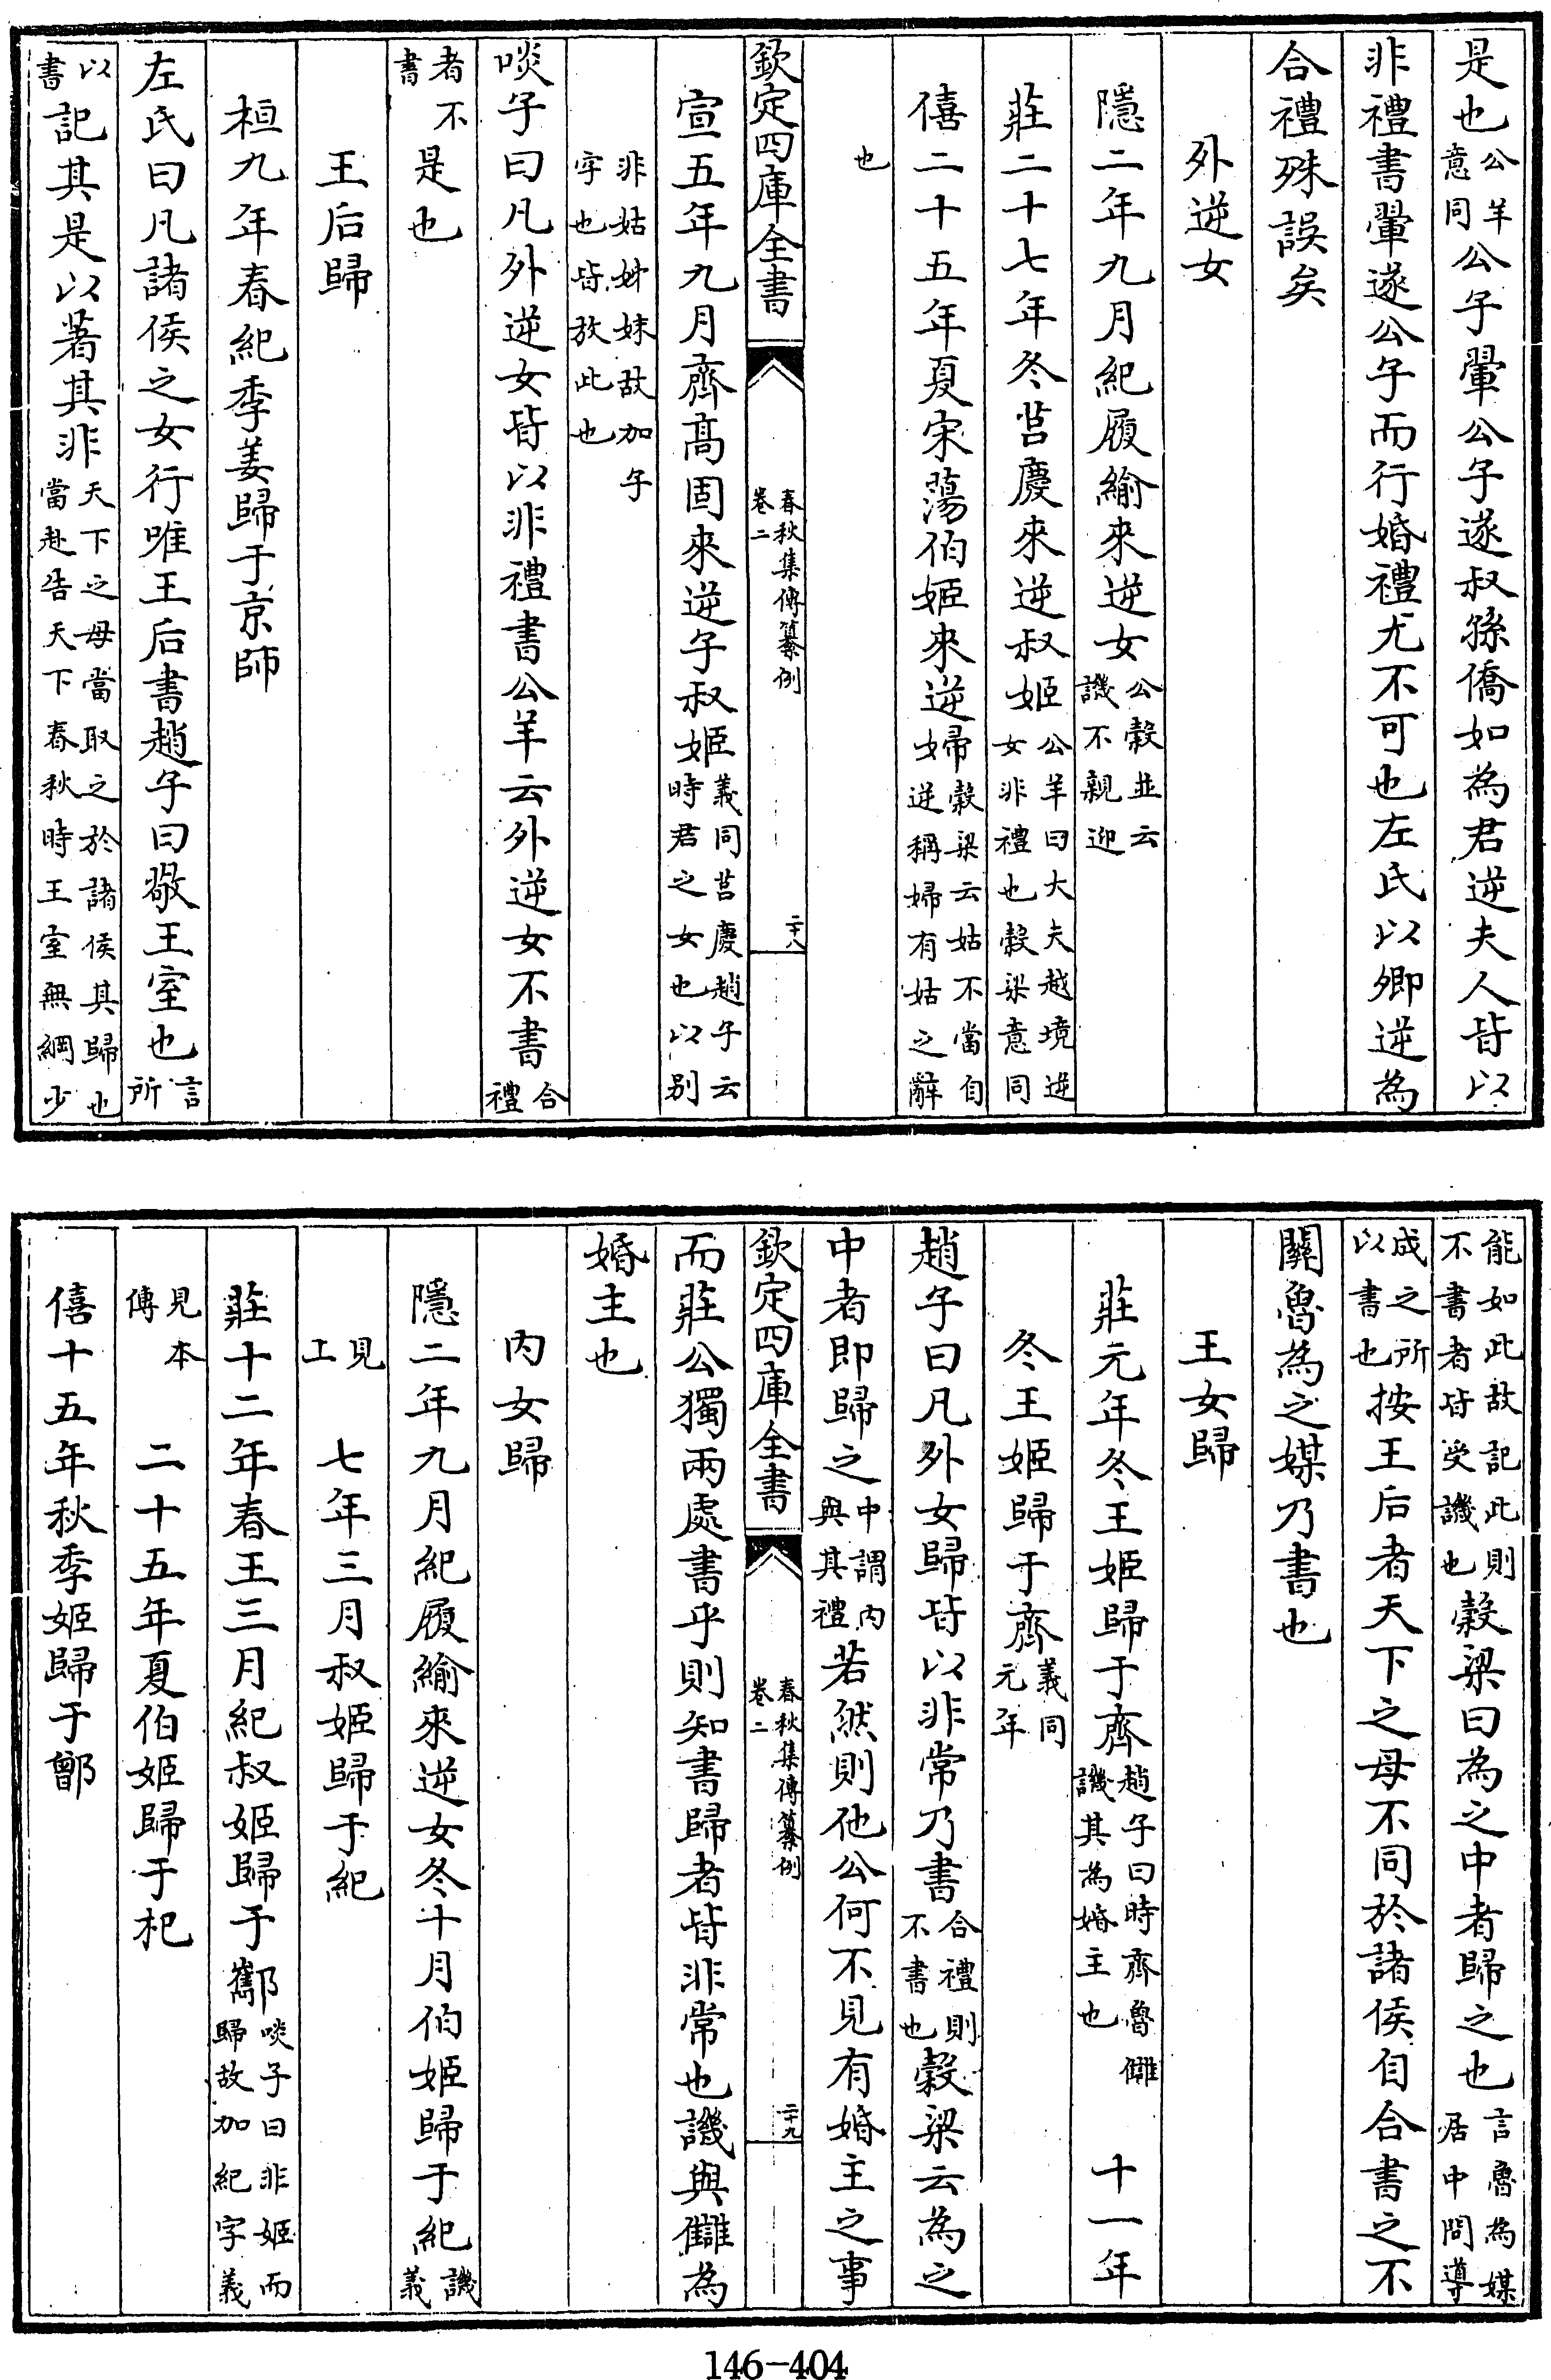 是也公羊意同公子翬公子遂叔孫僑如為君逆夫人皆以
非禮書翬遂公子而行婚禮尤不可也左氏以卿逆為
合禮殊誤矣
外逆女
隱二年九月紀履緰來逆女公穀並云譏不親迎
莊二十七年冬莒慶來逆叔姬公羊曰大夫越境逆女非禮也穀梁意同
僖二十五年夏宋蕩伯姬來逆婦穀梁云姑不當自逆稱婦有姑之辭
也
欽定四庫全書 春秋集傳纂例卷二 二十八
宣五年九月齊高固來逆子叔姬義同莒慶趙子云時君之女也以别
非姑姊妹故加子字也皆放此也
啖子曰凡外逆女皆以非禮書公羊云外逆女不書合禮
者不書是也
王后歸
桓九年春紀季姜歸于京師
左氏曰凡諸侯之女行唯王后書趙子曰敬王室也言所
以書記其是以著其非天下之母當取之於諸侯其歸也當赴告天下春秋時王室無綱少
能如此故記此則不書者皆受譏也穀梁曰為之中者歸之也言魯為媒居中間導
成之所以書也按王后者天下之母不同於諸侯自合書之不
關魯為之媒乃書也
王女歸
莊元年冬王姬歸于齊趙子曰時齊魯讎譏其為婚主也 十一年
冬王姬歸于齊義同元年
趙子曰凡外女歸皆以非常乃書合禮則不書也穀梁云為之
中者即歸之中謂内與其禮若然則他公何不見有婚主之事
欽定四庫全書 春秋集傳纂例卷二 二十九
而莊公獨兩處書乎則知書歸者皆非常也譏與讎為
婚主也
内女歸
隱二年九月紀履緰來逆女冬十月伯姬歸于紀譏義
見上 七年三月叔姬歸于紀
莊十二年春王三月紀叔姬歸于酅啖子曰非姬而歸故加紀字義
見本傳 二十五年夏伯姬歸于杞
僖十五年秋季姬歸于鄫
146-404